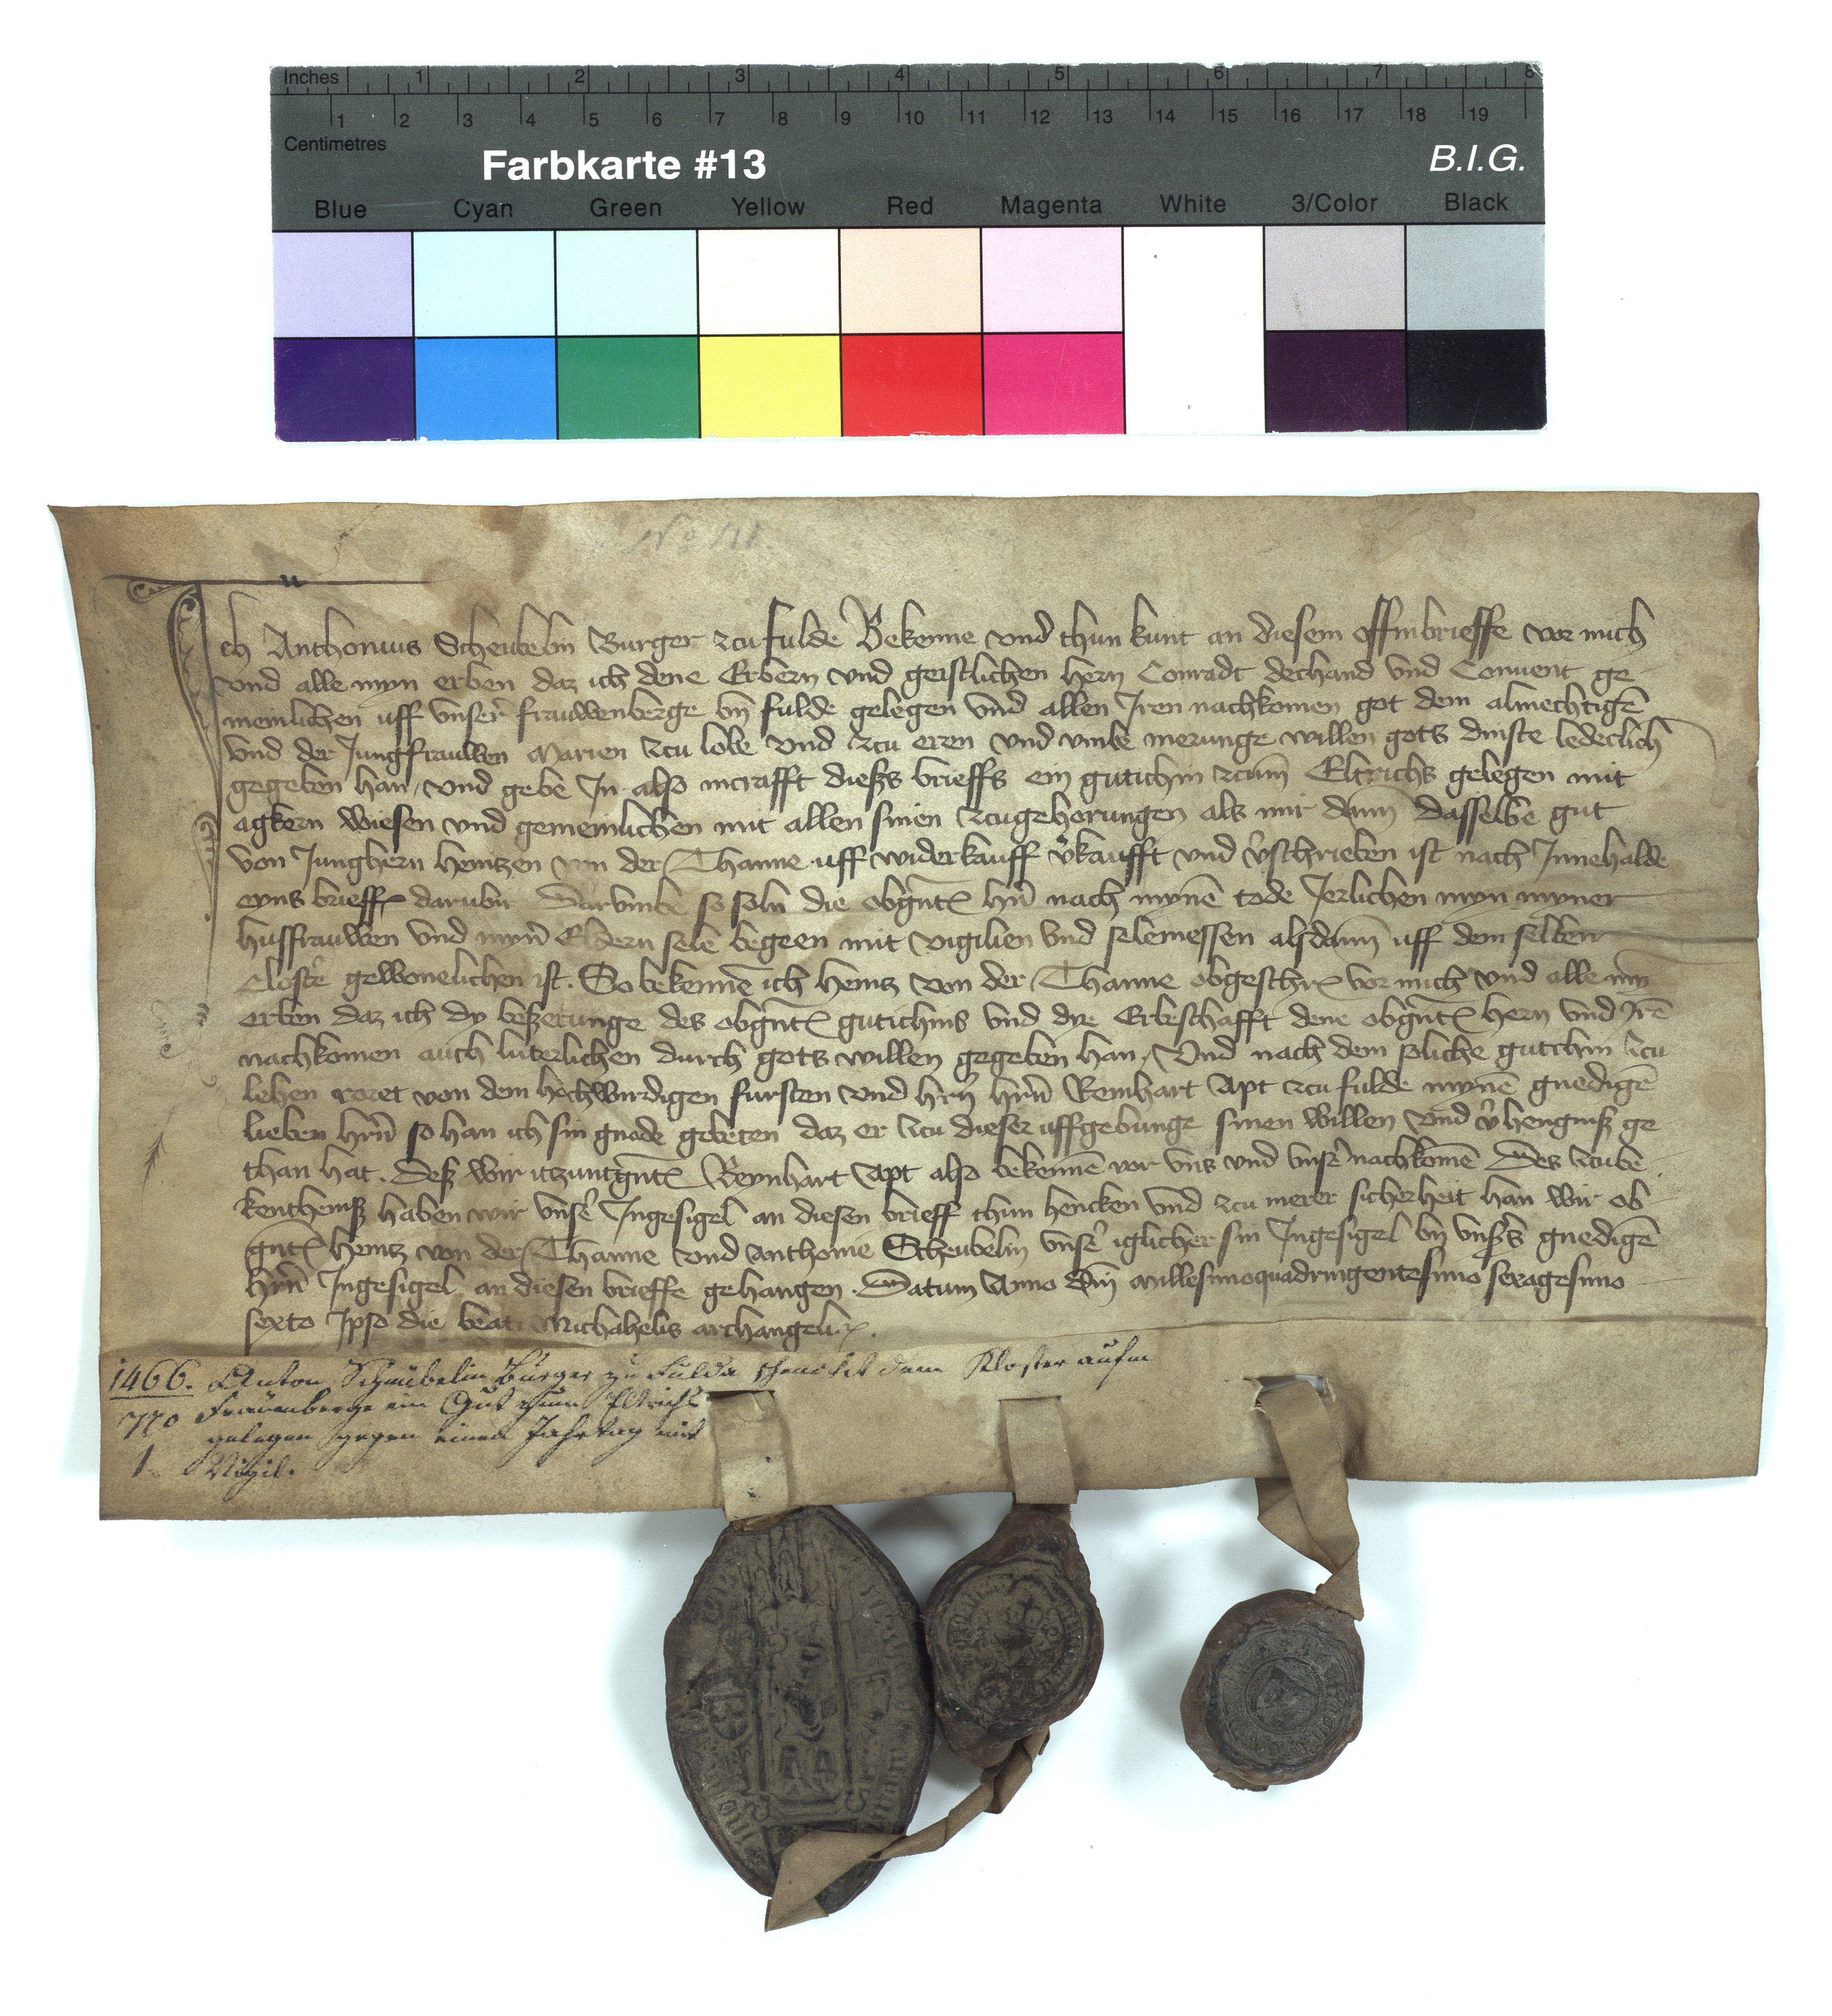 Inches 1 2 3 4 5 6 7 8
1 2 3 4 5 6 7 8 9 10 11 12 13 14 15 16 17 18 19
Centimetres
Farbkarte #13 B.I.G.
Blue Cyan Green Yellow Red Magenta White 3/Color Black
Ich Anthonius Scheubelin Burger zcu fulde Bekenne vnd thun kunt an diesem offinbrieffe vor mich
vnd alle myn erben daz ich dene Erbern vnd geistlichen hern Conradt dechand vnd Conuent ge-
meinlichen uff vnser frauwenberge by fulde gelegen vnd allen Jren nachkomen got dem almechtigē
vnd der Jungfrauwen Marien zcu lobe vnd zcu eren vnd vmbe merunge willen gots dinste ledeclich
gegeben han, vnd gebe Jn also incrafft dießs brieffs ein gutichin zcum Eltrichs gelegen mit
agkern wiesen vnd gemeinlichen mit allen sinen zcugehorungen als mir dann dasselbe gut
von Junghern heintzen von der Thanne uff widerkauff v̓kaufft vnd v̓schrieben ist nach Jnnehalde
eyns brieffs darubir Darvmbe so soln die obgn̄t hn̄ nach mynē tode Jerlichen myn myner
husfrauwen vnd myn̄ Eldern sele begeen mit vigilien vnd selemessen alsdann uff dem selben
Closter gewonelichen ist. So bekennē ich heintz von der Thanne obgeschr vor mich vnd alle myn
erben daz ich dy beßerunge des obgn̄t gutichins vnd die Erbeschafft dene obgn̄t hern vnd Jrē
nachkomen auch luterlichen durch gots willen gegeben han. Vnd nach dem soliche gutchin zcu
lehen roret von dem hochwirdigen fursten vnd hrn̄ hrn̄ Reinhart Apt zcu fulde mynē gnedigē
lieben hrn̄ so han ich sin gnade gebeten daz er zcu dieser uffgebunge sinen willen vnd v̓hengniß ge
than hat. Deß wir itzuntgn̄t Reynhart Apt also bekennē vor vns vnd vnser nachkomē Des zcube
kentheniß haben wir vnser Jngesigel an diesen brieff thun hencken vnd zcu merer sicherheit han wir ob-
gn̄t heintz von der Thanne vnd Anthonie Scheubelin vnser iglicher sin Jngesigel by vnßers gnedigē
hrn̄ Jngesigel an diesen brieffe gehangen. Datum Anno dn̄i millesimoquadringentesimo sexagesimo
sexto Jpso die beati Michahelis archangeli.
1466. Anton Scheubelin Burger zu Fulda schencket dem Kloster aufm
770 Frauenberge ein Gut zum Eltrichs
gelegen gegen einen Jahrtag mit
1. Vigil.